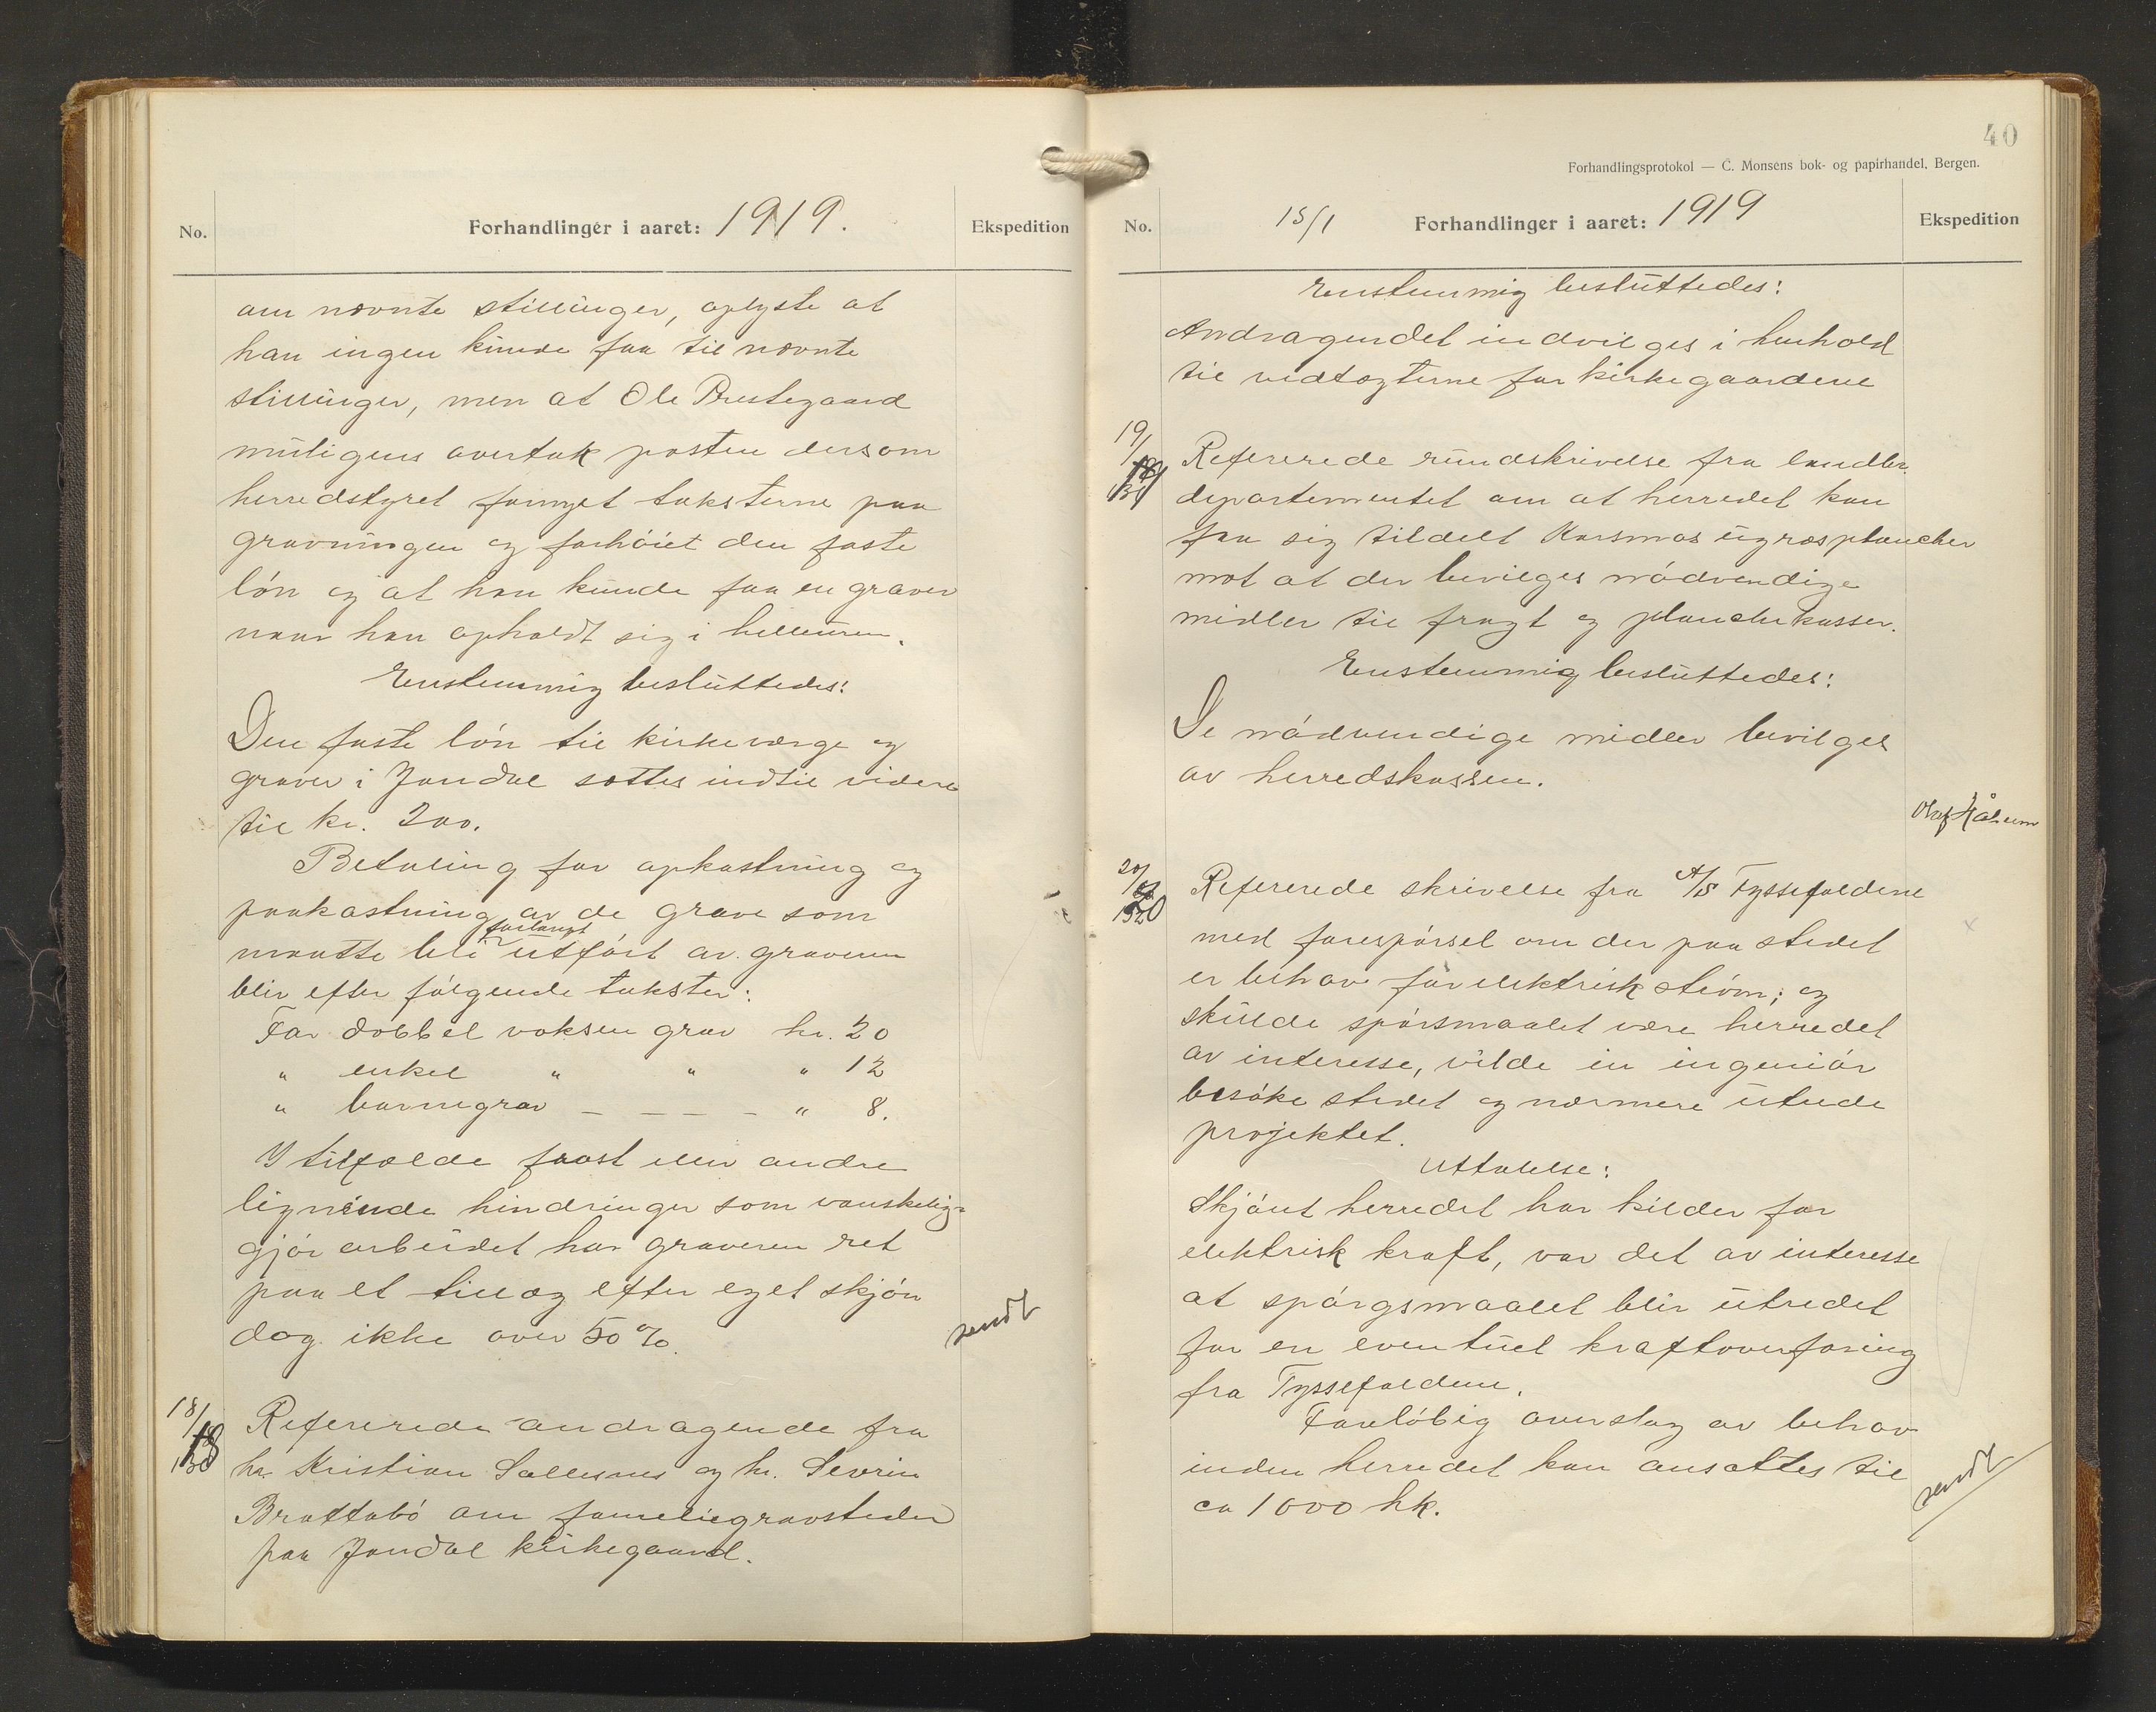 No.
Forhandlinger i aaret: 1919.
Ekspedition
om nævnte stillinger, oplyste at
han ingen kunde faa til nævnte
stillinger, men at Ole Prestegaard
muligens overtok posten dersom
herredstyret forøget taksterne paa
gravningen og forhöiet den faste
lön og at han kunde faa en graver
naar han opholdt sig i hellemen.
Enstemmig besluttedes:
Den faste lön til kirkeværge og
graver i Jondal sættes indtil videre
til kr. 200.
Betaling for opkastning og
paakastning av de grave som
forlangt
maatte bli utfört av graveren
blir efter fölgende takster:
For dobbel voksen grav kr. 20
" enkel " " " 12
" barnegrav - - - - " 8.
I tilfælde frost eller andre
lignende hindringer som vanskelig-
gjör arbeidet har graveren ret
paa et tillæg efter eget skjön
dog ikke over 50%.
sendt
18/
18
Refererede andragende fra
hr. Kristian Sællesnes og hr. Severin
Brattabö om familiegravsteder
paa Jondal kirkegaard.
40
Forhandlingsprotokol — C. Monsens bok- og papirhandel, Bergen.
No.
15/1 Forhandlinger i aaret: 1919
Ekspedition
Enstemmig besluttedes:
Andragendet indvilges i henhold
til vedtægterne for kirkegaardene
19/
Refererede rundskrivelse fra landbr.
departementet om at herredet kan
faa sig tildelt Korsmos ugræsplancher
mot at der bevilges nödvendige
midler til fragt og planchekasser.
Enstemmig besluttedes:
De nödvendige midler bevilges
av herredskassen.
Olaf Håheim
20/
20
Refererede skrivelse fra A/S Tyssefaldene
med forespörsel om der paa stedet
er behov for elektrisk ström; og
skulde spörsmaalet være herredet
av interesse, vilde en ingeniör
besöke stedet og nærmere utrede
projektet.
Uttalelse:
Skjönt herredet har kilder for
elektrisk kraft, var det av interesse
at spörgsmaalet blir utredet
for en eventuel kraftoverföring
fra Tyssefaldene.
Forelöbig overslag av behov
inden herredet kan ansættes til
ca 1000 hk.
sendt